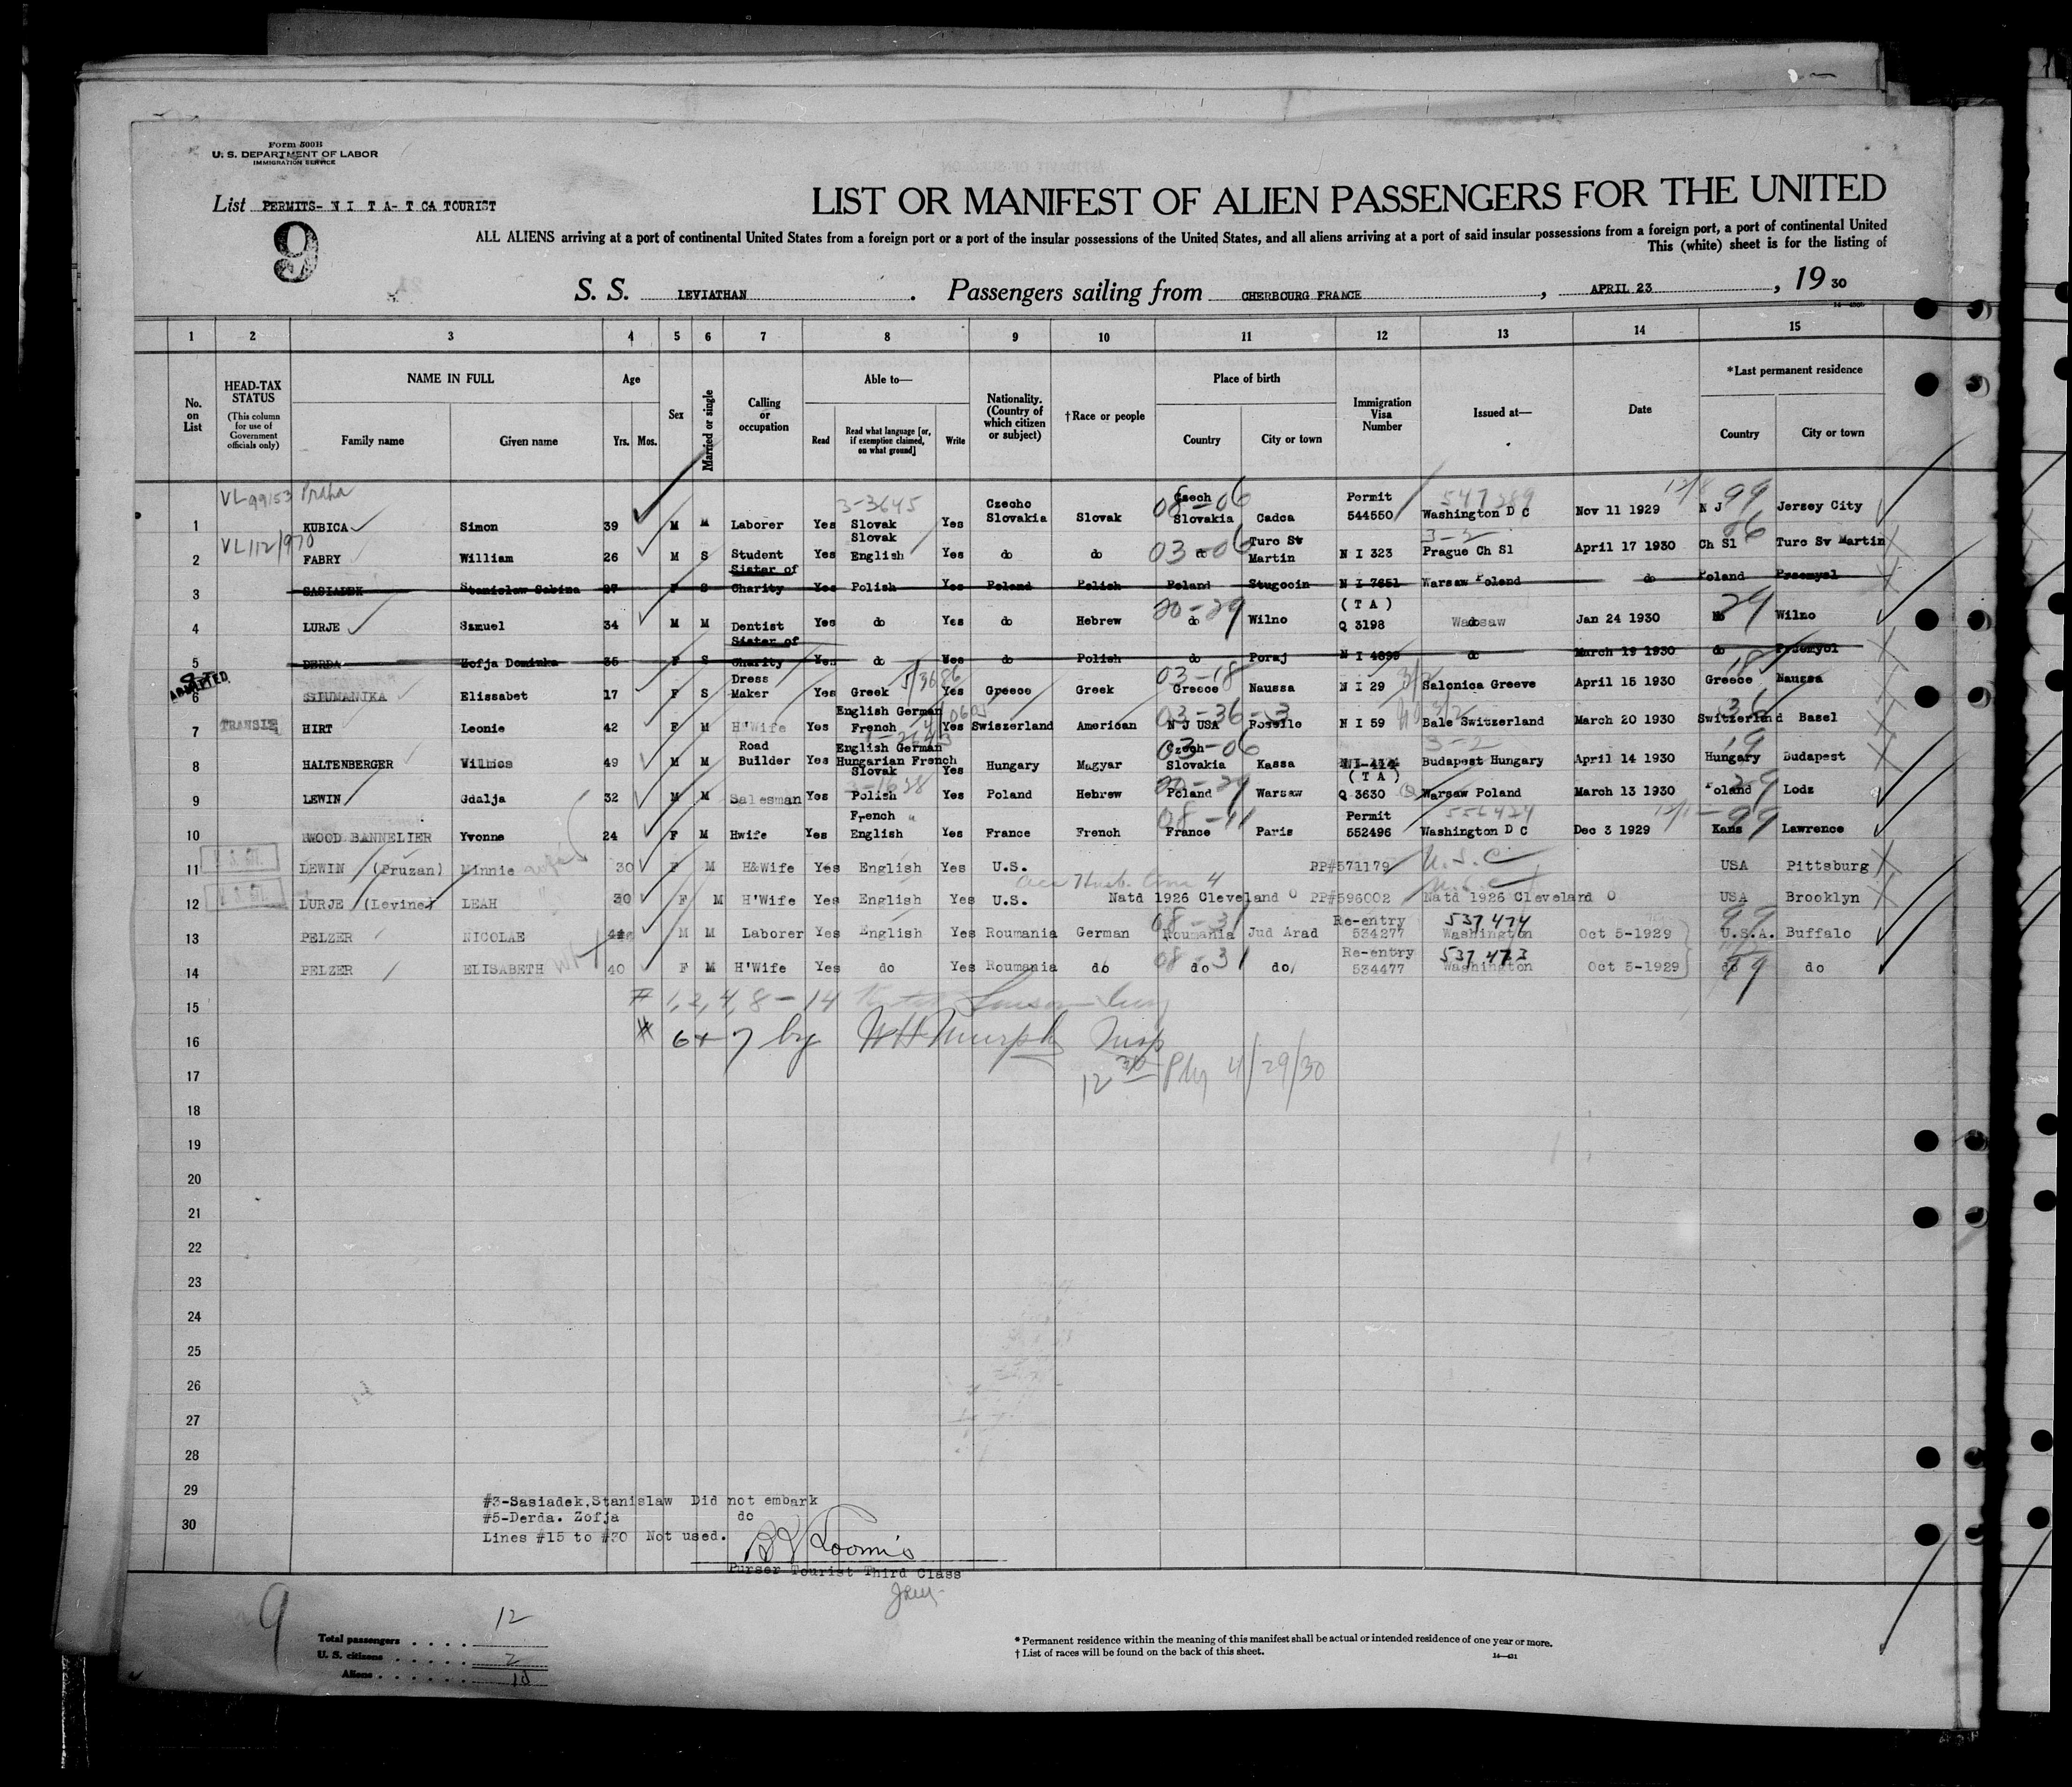 Form 500B
U. S. DEPARTMENT OF LABOR
IMMIGRATION SERVICE
List PERMITS- N I T A- T CA TOURIST
9
LIST OR MANIFEST OF ALIEN PASSENGERS FOR THE UNITED
ALL ALIENS arriving at a port of continental United States from a foreign port or a port of the insular possessions of the United States, and all aliens arriving at a port of said insular possessions from a foreign port, a port of continental United
This (white) sheet is for the listing of
S. S. LEVIATHAN . Passengers sailing from CHERBOURG FRANCE , APRIL 23 , 19 30
1 2 3 4 5 6 7 8 9 10 11 12 13 14 15
No. on List
HEAD-TAX STATUS (This column for use of Government officials only)
NAME IN FULL
Family name Given name
Age
Yrs. Mos.
Sex
Married or single
Calling or occupation
Able to—
Read Read what language [or, if exemption claimed, on what ground] Write
Nationality. (Country of which citizen or subject)
†Race or people
Place of birth
Country City or town
Immigration Visa Number
Issued at—
Date
*Last permanent residence
Country City or town
VL 99153 Praha 3-3645 08-06 547289 99
1 KUBICA Simon 39 M M Laborer Yes Slovak Yes Czecho Slovakia Slovak Czech Slovakia Cadca Permit 544550 Washington D C Nov 11 1929 N J Jersey City
VL 112/970 03-06 3-2
2 FABRY William 26 M S Student Yes Slovak English Yes do do do Turo Sv Martin N I 323 Prague Ch Sl April 17 1930 Ch Sl Turo Sv Martin
3 SASIADEK Stanislaw Sabina 27 F S Sister of Charity Yes Polish Yes Poland Polish Poland Stugocin N I 7651 Warsaw Poland do Poland Przemysl
20-29 29
4 LURJE Samuel 34 M M Dentist Yes do Yes do Hebrew do Wilno (TA) Q 3198 Warsaw Jan 24 1930 Wilno
5 DERDA Zofja Dominka 35 F S Sister of Charity Yes do Yes do Polish do Poraj N I 4899 do March 19 1930 do Przemysl
ADMITTED 03-18 18
6 Elissabet 17 F S Dress Maker Yes Greek Yes Greece Greek Greece Naussa N I 29 Salonica Greeve April 15 1930 Greece Naussa
TRANSIT 03-36-3 36
7 HIRT Leonie 42 F M H'Wife Yes English German French Yes Swiszerland American N J USA Roselle N I 59 Bale Switzerland March 20 1930 Switzerland Basel
03-06 3-2 19
8 HALTENBERGER Vilmos 49 M M Road Builder Yes English German Hungarian French Slovak Yes Hungary Magyar Czech Slovakia Kassa Budapest Hungary April 14 1930 Hungary Budapest
20-29 29
9 LEWIN Gdalja 32 M M Salesman Yes Polish Yes Poland Hebrew Poland Warsaw (TA) Q 3630 Warsaw Poland March 13 1930 Poland Lodz
08-11 99
10 WOOD BANNELIER Yvonne 24 F M Hwife Yes French English Yes France French France Paris Permit 552496 Washington D C Dec 3 1929 Kans Lawrence
11 LEWIN (Pruzan) Minnie 30 F M H&Wife Yes English Yes U.S. PP#571179 U.S.C. USA Pittsburg
acc Husb. line 4
12 LURJE (Levine) LEAH 30 F M H'Wife Yes English Yes U.S. Natd 1926 Cleveland O PP#596002 Natd 1926 Cleveland O USA Brooklyn
08-31 537474 99
13 PELZER NICOLAE M M Laborer Yes English Yes Roumania German Roumania Jud Arad Re-entry 534277 Washington Oct 5-1929 U.S.A. Buffalo
08-31 537473 99
14 PELZER ELISABETH 40 F M H'Wife Yes do Yes Roumania do do do Re-entry 534477 Washington Oct 5-1929 do do
15 # 1, 2, 4, 8 - 14
16 6 + 7 by W H Murphy Insp
17 12 30 Pm 4/29/30
18
19
20
21
22
23
24
25
26
27
28
29
30
#3-Sasiadek,Stanislaw Did not embark
#5-Derda. Zofja do
Lines #15 to #30 Not used.
Loomis
Purser Tourist Third Class
9
Total passengers . . . . 12
U. S. citizens . . . . . 2
Aliens . . . . . . 10
* Permanent residence within the meaning of this manifest shall be actual or intended residence of one year or more.
† List of races will be found on the back of this sheet.